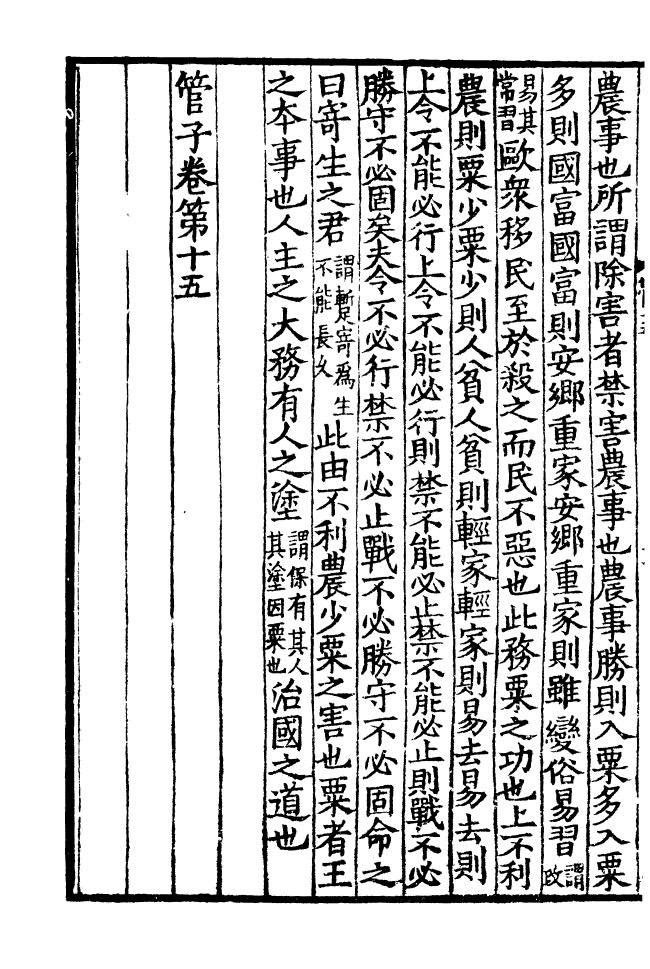 農事也所謂除害者禁害農事也農事勝則入粟多入粟
多則國富國富則安鄉重家安鄉重家則雖變俗易習謂改
易其常習歐衆移民至於殺之而民不惡也此務粟之功也上不利
農則粟少粟少則人貧人貧則輕家輕家則易去易去則
上令不能必行上令不能必行則禁不能必止禁不能必止則戰不必
勝守不必固矣夫令不必行禁不必止戰不必勝守不必固命之
曰寄生之君謂暫寄爲生不能長久此由不利農少粟之害也粟者王
之夲事也人主之大務有人之塗謂保有其人其塗因粟也治國之道也
管子卷第十五